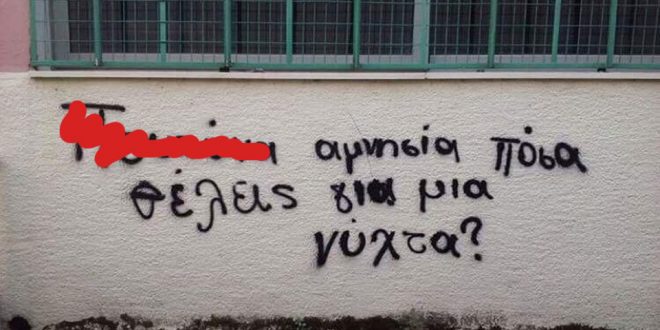 αμνησία πόσα
θέλεις για μια
νύχτα?